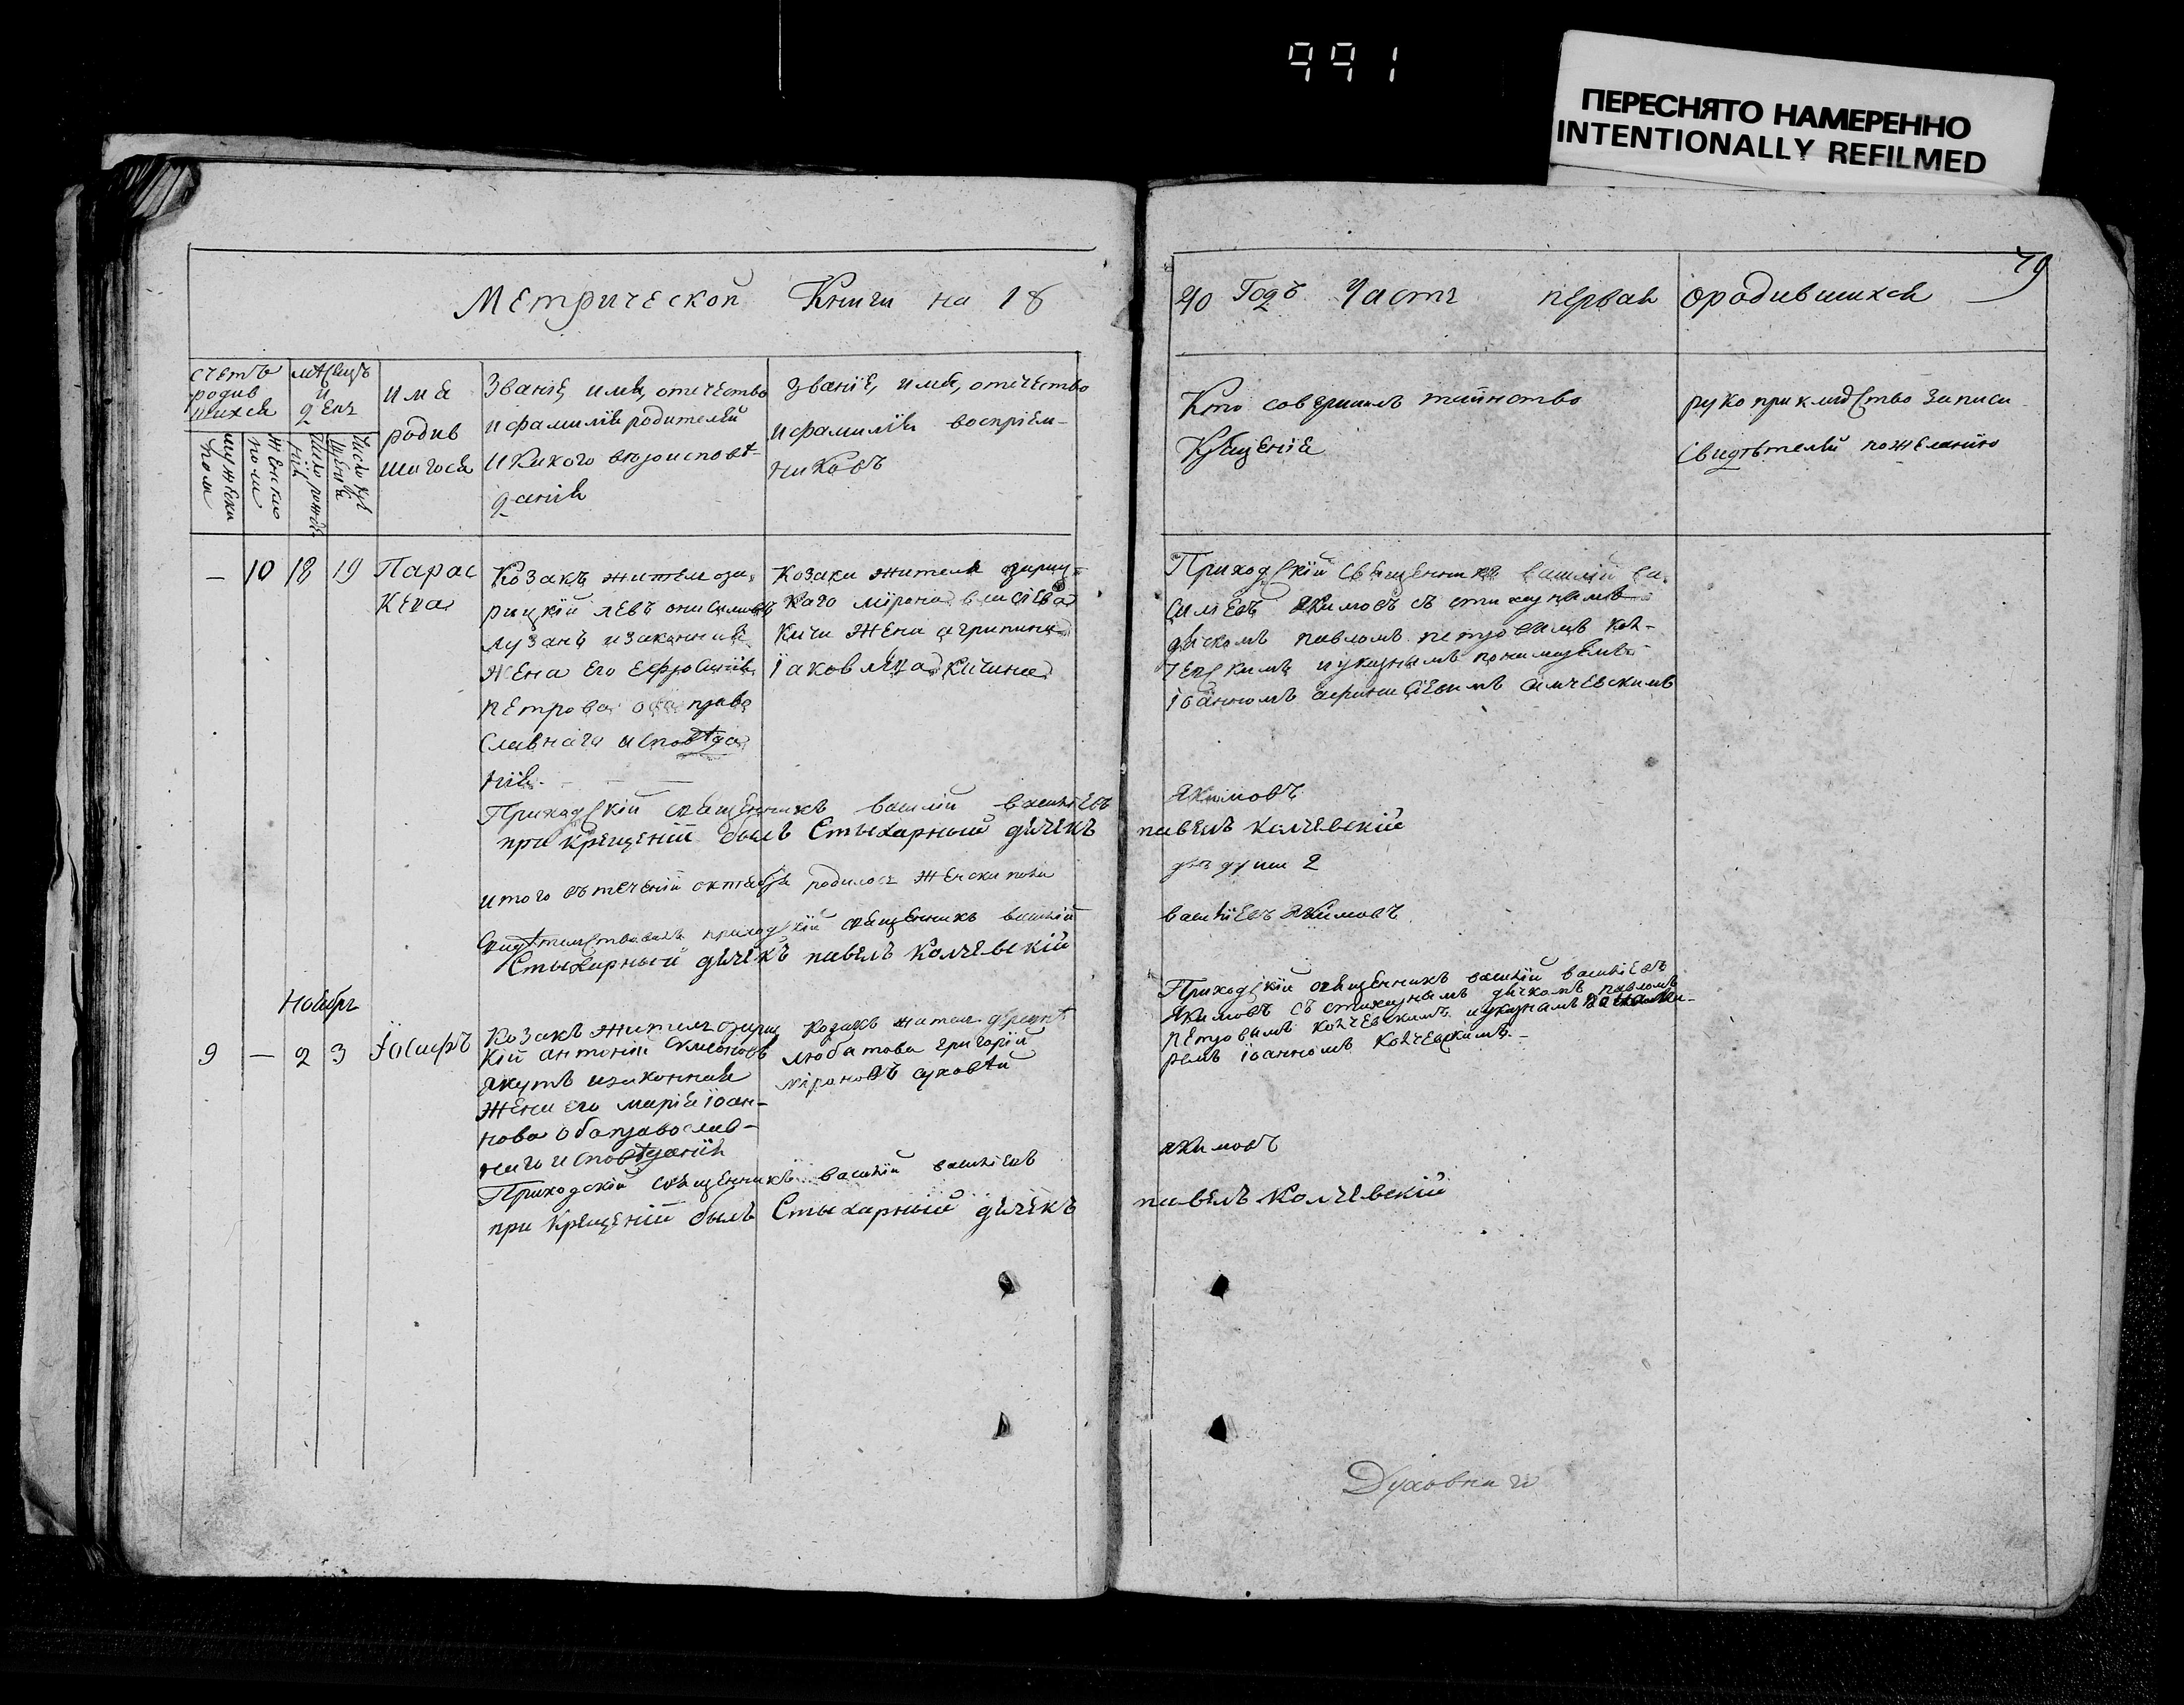 991
ПЕРЕСНЯТО НАМЕРЕННО
INTENTIONALLY REFILMED
79
Метрической Книги на 18
40 Годъ Часть первая о родившихся
счетъ родив шихся
мѣсяцъ и день
мужеска пола
женско пола
число рожде нія
имя
родив
шагося
Званіе, имя, отечество
и фамилія родителей
и какого вѣроисповѣ-
данія
званіе, имя, отечество
и фамилія воспріем-
никовъ
Кто совершалъ таинство
Крещенія
рукоприкладство записи
свидѣтелей по желанію
— 10 18 19
Парас
кева
Козакъ житель ози
рицкій левъ
лузанъ и законная
жена его Ефросинія
петрова оба право
славнаго исповѣда
нія.
Козака жителя озириц-
каго мірона
жена агрипина
Іаковлева
Приходскій священникъ василій ва
силіевъ Якимовъ съ стихарнымъ
дячкомъ павломъ петровымъ кол-
чевскимъ и указнымъ пономаремъ
іоанномъ
Приходскій священникъ василій василіевъ
якимовъ
при крещеніи былъ Стыхарный дячекъ
павелъ колчевскій
итого въ теченіи октября родилось женска пола
двѣ души 2
Свидѣтельствовалъ приходскій священникъ василій
василіевъ Якимовъ
Стыхарный дячекъ павелъ колчевскій
Ноябрь
9 — 2 3
Іосифъ
Козакъ житель озириц
кій антоній Симеоновъ
якутъ и законная
жена его марія іоан-
нова оба православ-
наго исповѣданія
козакъ житель деревнѣ
любатова григорій
міроновъ
Приходскій священникъ василій василіевъ
Якимовъ съ стихарнымъ дячкомъ павломъ
петровымъ колчевскимъ и указнымъ понома-
ремъ іоанномъ колчевскимъ.-
Приходскій священникъ василій василіевъ
якимовъ
при крещеніи былъ Стыхарный дячекъ
павелъ колчевскій
Духовнаго